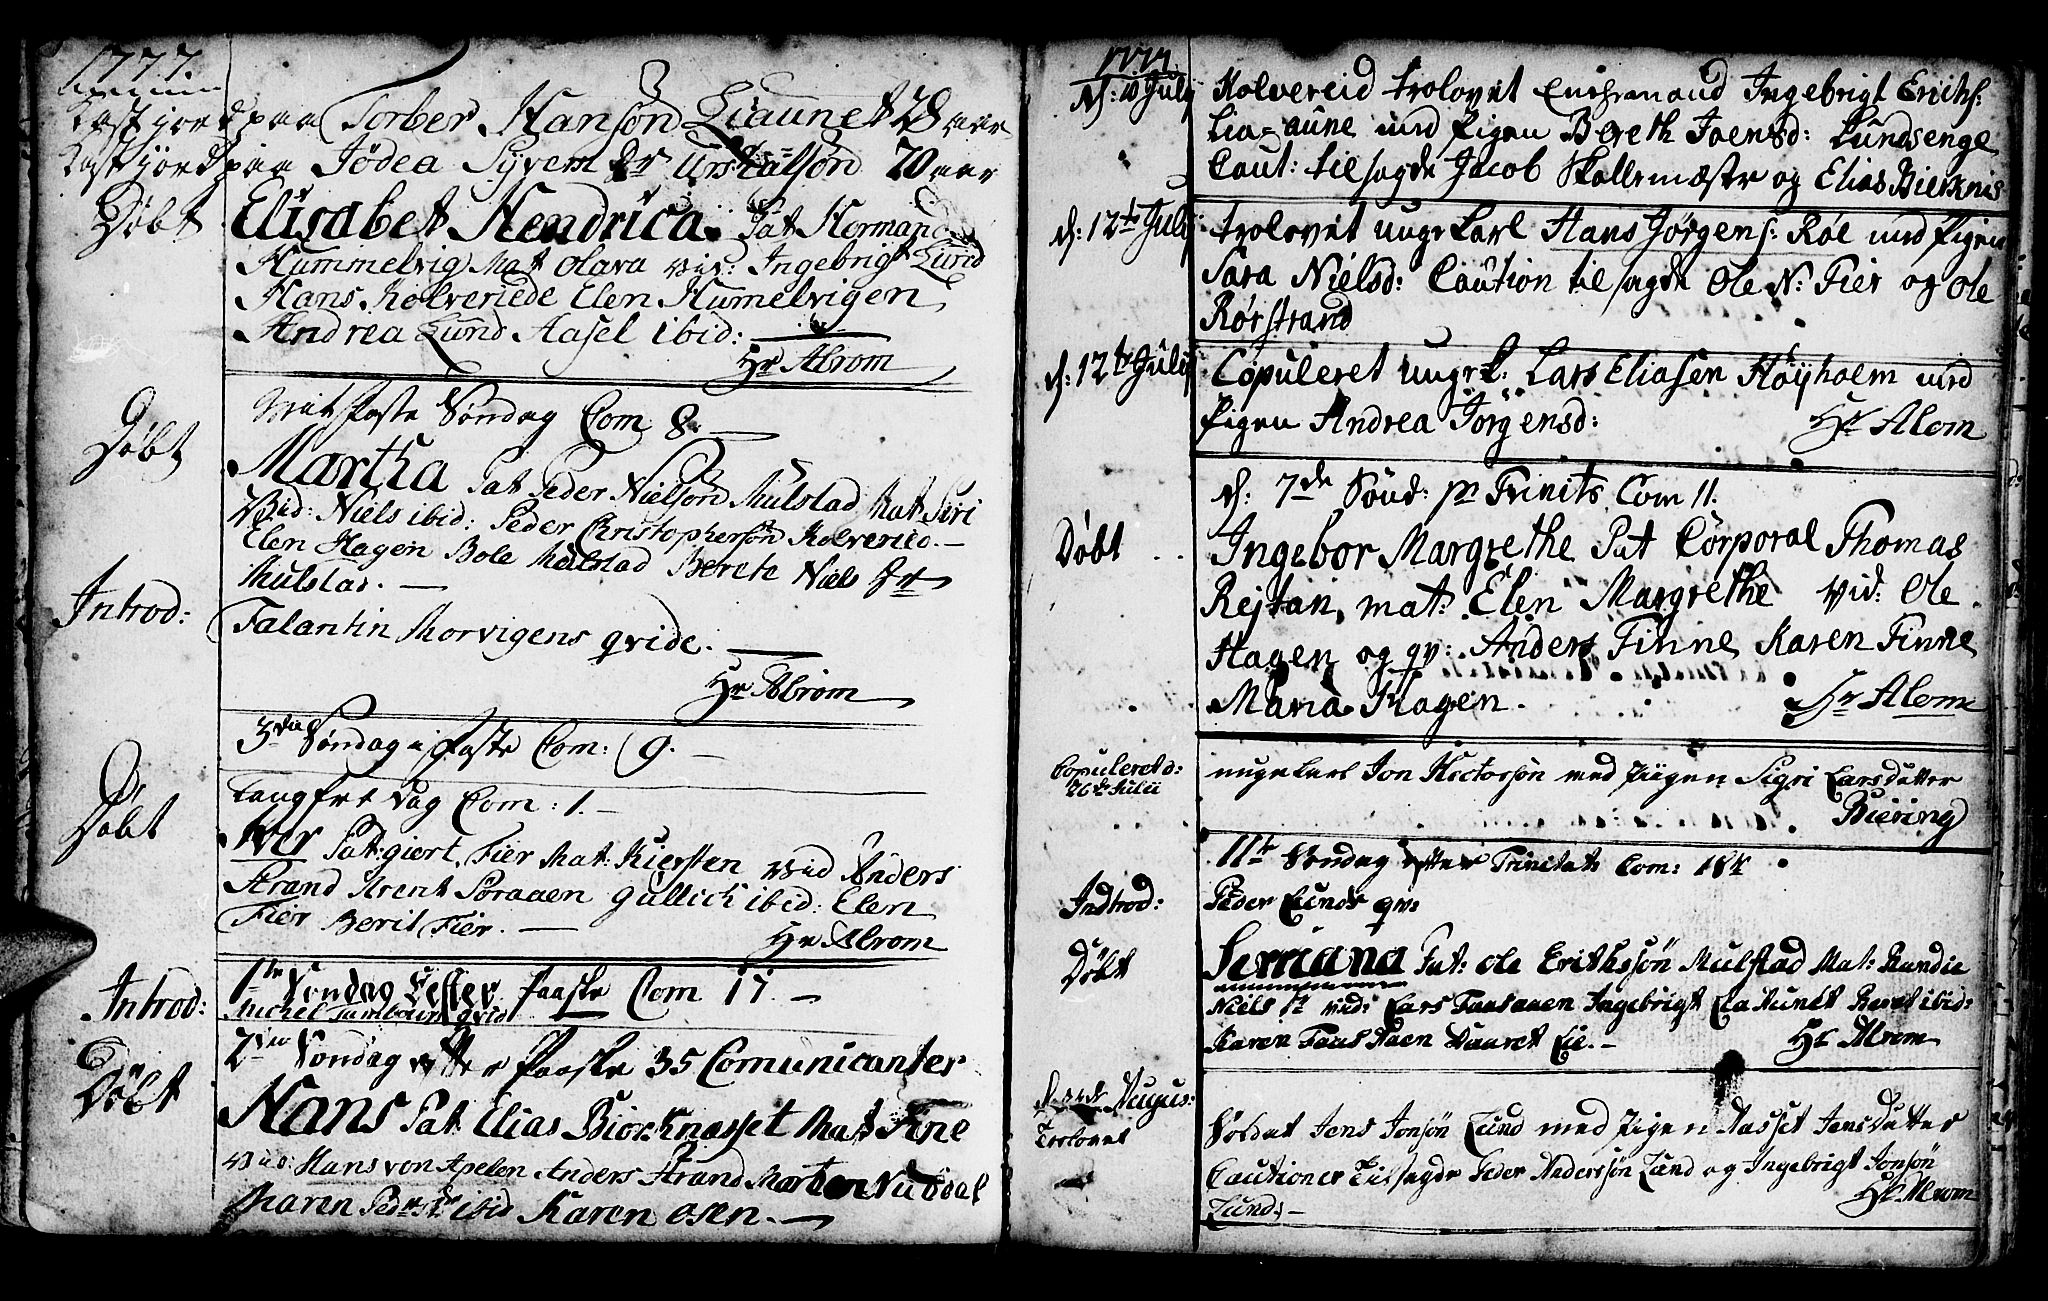 1777.
Kast jord paa Torber Hanson Liaunet 78 aar
Kast jord paa Jödea Syvem dr 70 aar
Döbt Elisabet Hendrica. Pat Herman
Hummelvig Mat Olava vid: Ingebrigt Lund
Hans Kolveriede Elen Humelvigen
Andrea Lund Aasel ibid:
Hr Abrom
Mit faste Söndag Com 8.
Döbt Martha Pat Peder Nielsön Mulstad Mat Siri
Vid: Niels ibid: Peder Christophersön Kolveried.
Elen Hagen Bole Mulstad Berete Niels dr
Mulstad.
Introd: Falantin Morvigens qvide.
Hr Abrom
3die Söndag i Faste Com: 9.
Langfredag Com: 1.
Döbt Iver Pat: giert Fier Mat: Kiersten Vid Anders
Strand Arent Soraaen Gullich ibid: Elen
Fier Berit Fier.
Hr Abrom
1te Söndag Effter Paaske Com 17.
Introd: Michel Tambours qvid
2den Söndag effter Paaske 35 Comunicanter
Döbt Hans Pat Elias Biörknesset Mat Fine
vid: Hans von Apelen Anders Strand Morten Nubdal
Maren Peders dr ibid Karen Osen.
1777.
d: 10 July Kolvereid trolovet Enchemand Ingebrigt Erichs:
Lia-aune med Pigen Bereth Joensd: Lundsenge
Caut: tilsagde Jacob Skallemæstr og Elias Bierknis
d: 12te July trolovet unge Karl Hans Jörgens: Röe med Pigen
Sara Nielsd: Caution tilsagde Ole N: Fier og Ole
Rörstrand
d: 12te July Copuleret unge k: Lars Eliasen Höyholm med
Pigen Andrea Jörgensd:
Hr Alom
d: 7de Sönd: p Trinits Com 11.
Döbt Ingebor Margrethe Pat Corporal Thomas
Rejtan, mat: Elen Margrethe Vid: Ole
Hagen og qv: Anders Finne Karen Finne
Maria Hagen.
Hr Alom
Copuleret d: 26de Julii unge karl Jon Hectorsön med Piigen Sigri Larsdatter
Biering
11te Söndag effter Trinitats Com: 18
Indtrod: Peder Lunds qv:
Döbt Serriana Pat: Ole Erichssön Mulstad Mat: Randie
Niels dr vid: Lars Faasaaen Ingebrigt Lia Aunet Beret ibid:
Karen Faasaaen Maaret Lie.
Hr Abrom
Augus:
Trolovet Soldat Jens Jonsön Lund med Pigen Aasset Jensdatter
Cautioner Tilsagde Peder Pedersön Lund og Ingebrigt Jonsön
Lund.
Hr Abrom